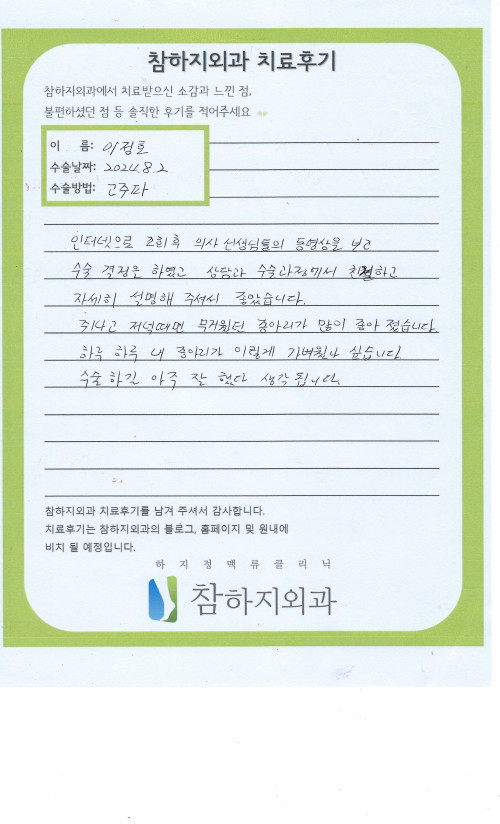 참하지외과 치료후기
참하지외과에서 치료받으신 소감과 느낀 점,
불편하셨던 점 등 솔직한 후기를 적어주세요
이 름: 이점호
수술날짜: 2024.8.2
수술방법: 고주파
인터넷으로 조회후 의사 선생님들의 동영상을 보고
수술 결정을 하였고 상담과 수술과정에서 친절하고
자세히 설명해 주셔서 좋았습니다.
쥐나고 저녁때면 무거웠던 종아리가 많이 좋아 졌습니다.
하루 하루 내 종아리가 이렇게 가벼웠나 싶습니다
수술하길 아주 잘 했다 생각 됩니다.
참하지외과 치료후기를 남겨 주셔서 감사합니다.
치료후기는 참하지외과의 블로그, 홈페이지 및 원내에
비치 될 예정입니다.
하지정맥류클리닉
참하지외과